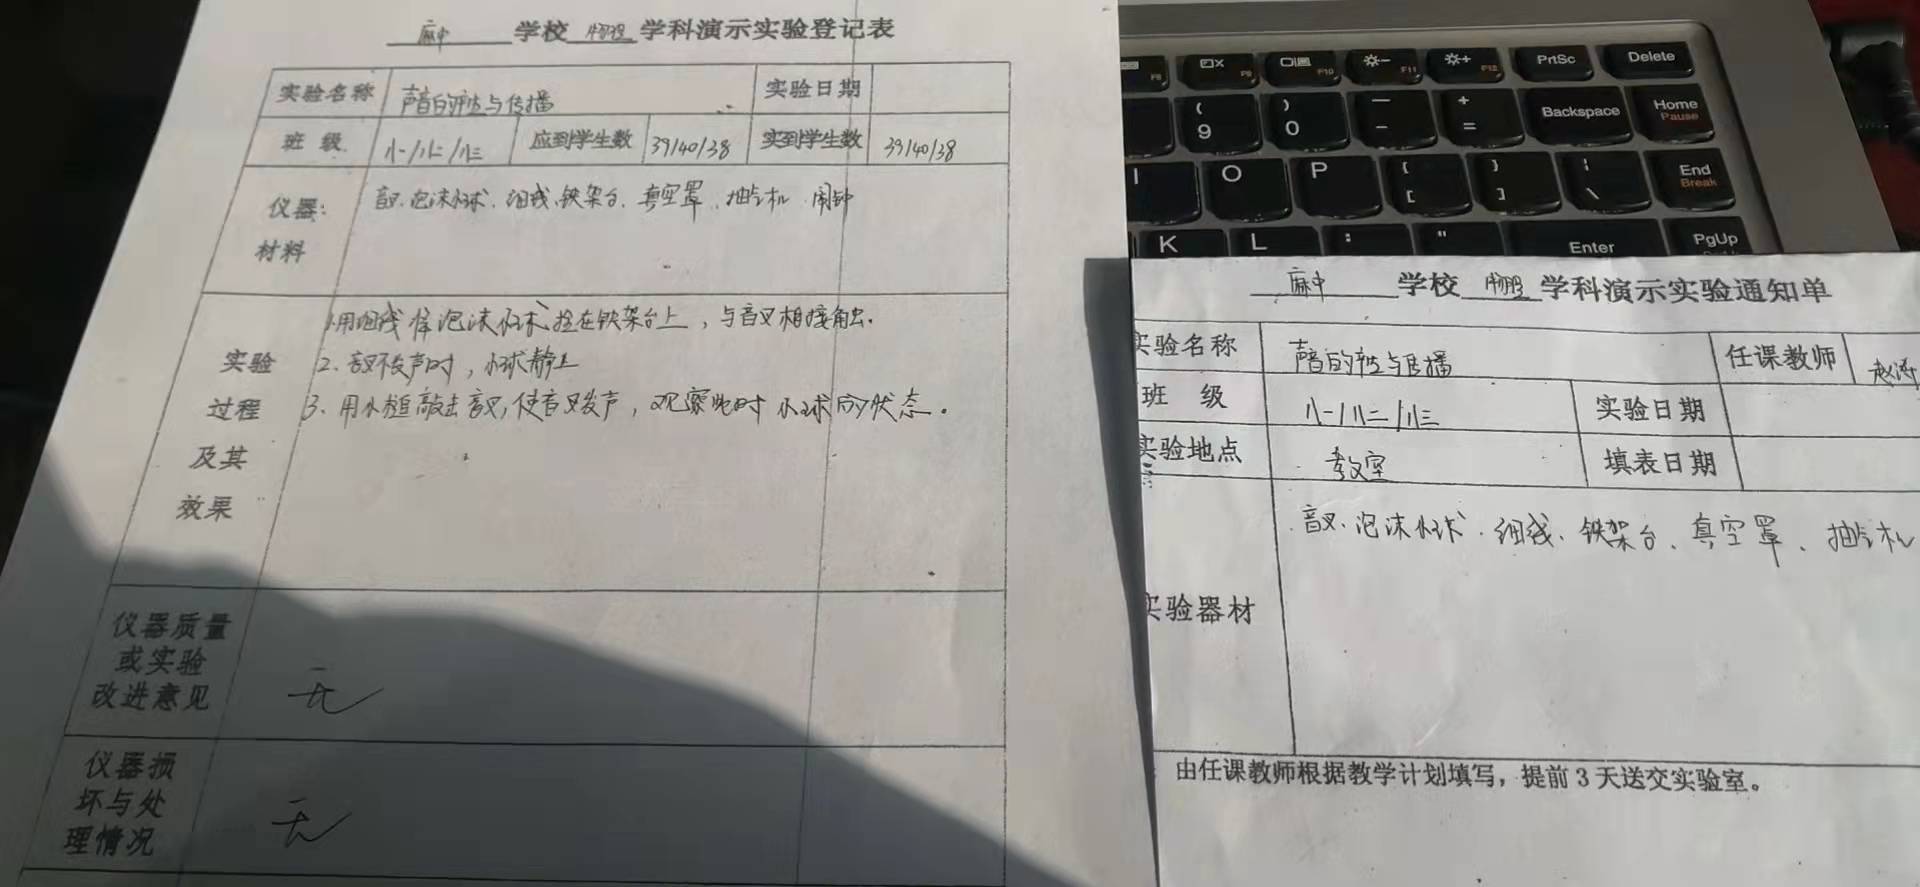 麻中 学校 物理 学科演示实验登记表
实验名称 声音的产生与传播 实验日期
班级 八一/八二/八三 应到学生数 39/40/38 实到学生数 39/40/38
仪器: 音叉、泡沫小球、细线、铁架台、真空罩、抽气机 闹钟
材料
1、用细线将泡沫小球拴在铁架台上，与音叉相接触。
实验 2、音叉不发声时，小球静止
过程 3、用小锤敲击音叉，使音叉发声，观察此时小球的状态。
及其
效果
仪器质量
或实验
改进意见 无
仪器损
坏与处 无
理情况
F8 F9 F10 F11 F12 PrtSc Delete
( 9 ) 0 — - + = Backspace Home Pause
I O P { [ } ] ¦ \ End Break
K L : " Enter PgUp
麻中 学校 物理 学科演示实验通知单
实验名称 声音的产生与传播 任课教师 赵涛
班级 八一/八二/八三 实验日期
实验地点 教室 填表日期
音叉、泡沫小球、细线、铁架台、真空罩、抽气机
实验器材
由任课教师根据教学计划填写，提前3天送交实验室。